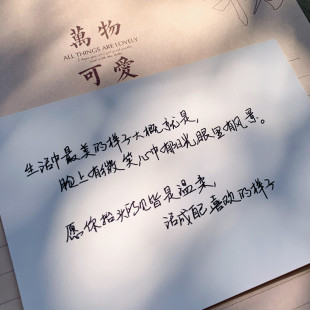 萬物
ALL THINGS ARE LOVELY
可愛
生活中最美的样子大概就是,
脸上有微笑心中有阳光眼里有风景。
愿你抬头所见皆是温柔,
活成自己喜欢的样子